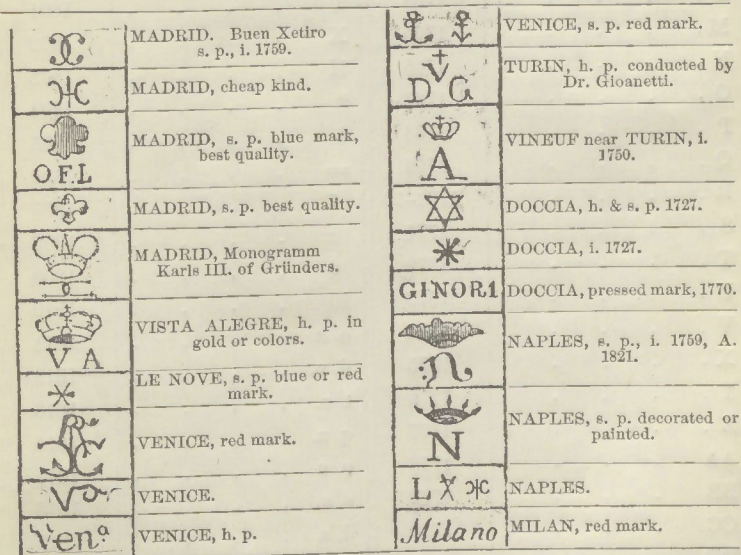 MADRID. Buen Xetiro
s. p., i. 1759.
MADRID, cheap kind.
O F L
MADRID, s. p. blue mark,
best quality.
MADRID, s. p. best quality.
MADRID, Monogramm
Karls III. of Gründers.
V A
VISTA ALEGRE, h. p. in
gold or colors.
LE NOVE, s. p. blue or red
mark.
VENICE, red mark.
Va
VENICE.
Ven.a
VENICE, h. p.
VENICE, s. p. red mark.
D V G
TURIN, h. p. conducted by
Dr. Gioanetti.
A
VINEUF near TURIN, i.
1750.
DOCCIA, h. & s. p. 1727.
DOCCIA, i. 1727.
GINOR1
DOCCIA, pressed mark, 1770.
n
NAPLES, s. p., i. 1759, A.
1821.
N
NAPLES, s. p. decorated or
painted.
L X
NAPLES.
Milano
MILAN, red mark.